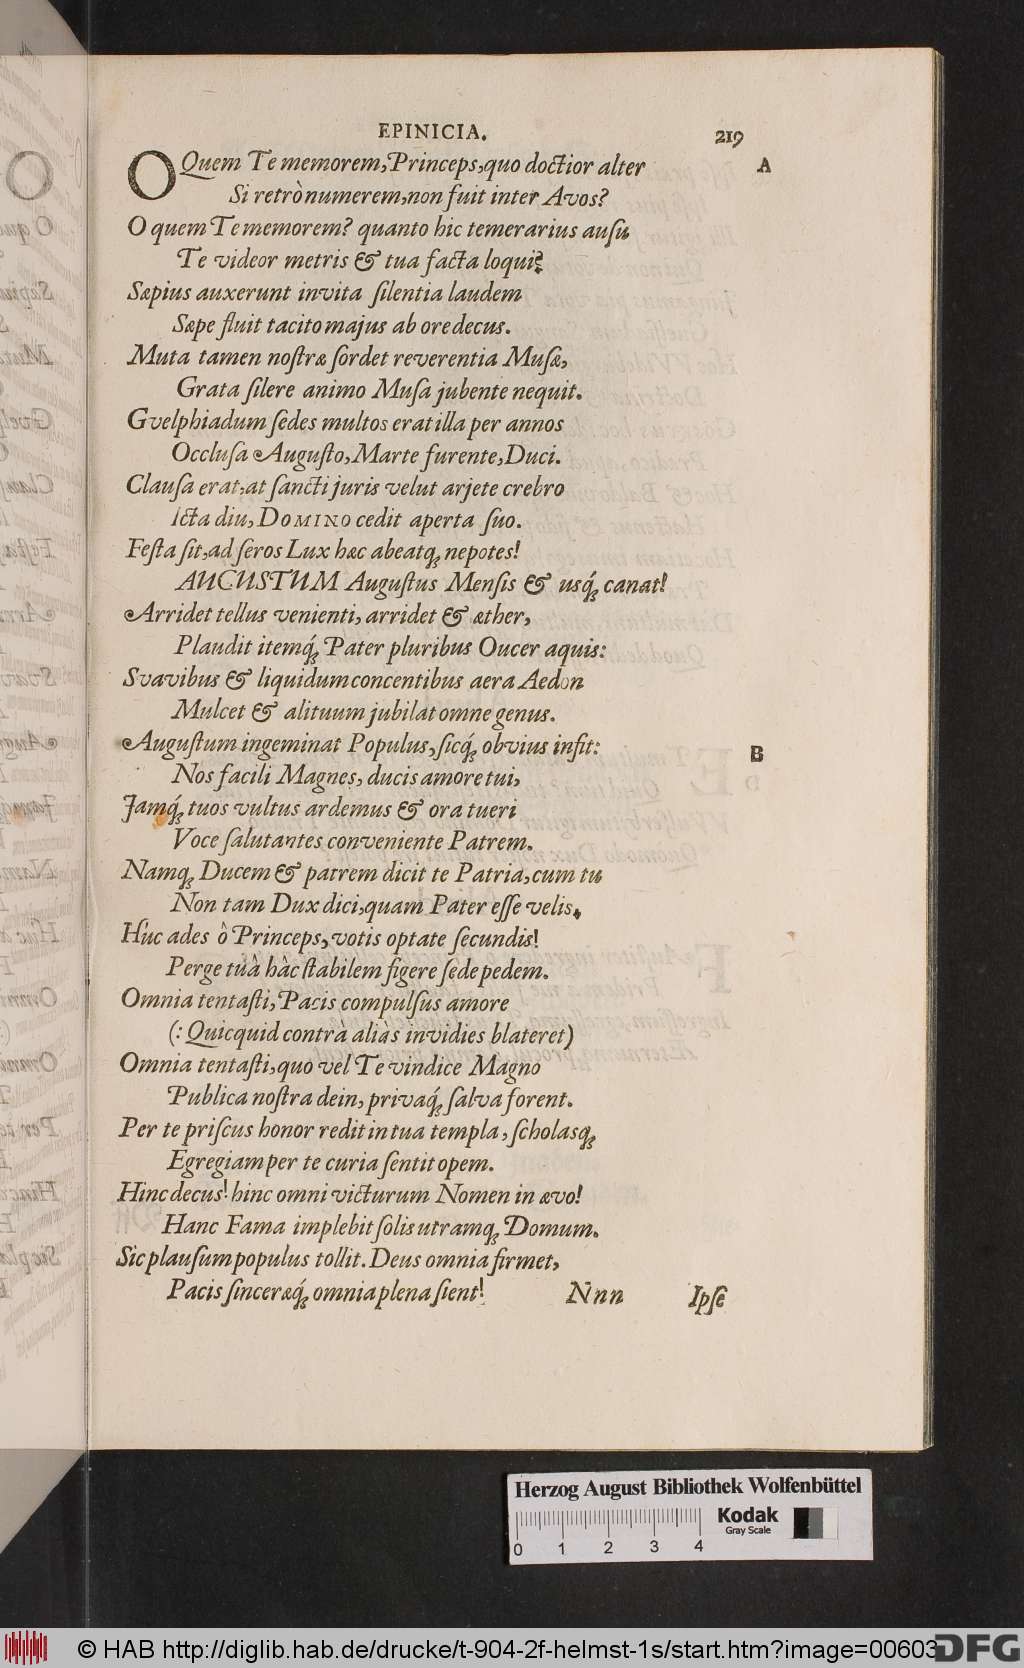 EPINICIA. 219
O Quem Te memorem, Princeps, quo doctior alter A
Si retrò numerem, non fuit inter Avos?
O quem Te memorem? quanto hic temerarius ausu
Te videor metris & tua facta loqui?
Sæpius auxerunt invita silentia laudem
Sæpe fluit tacito majus ab ore decus.
Muta tamen nostræ sordet reverentia Musæ,
Grata silere animo Musa jubente nequit.
Gvelphiadum sedes multos erat illa per annos
Occlusa Augusto, Marte furente, Duci.
Clausa erat, at sancti juris velut arjete crebro
Icta diu, DOMINO cedit aperta suo.
Festa sit, ad seros Lux hæc abeatq; nepotes!
AUGUSTUM Augustus Mensis & usq́; canat!
Arridet tellus venienti, arridet & æther,
Plaudit itemq́; Pater pluribus Oucer aquis:
Svavibus & liquidum concentibus aera Aedon
Mulcet & alituum jubilat omne genus.
Augustum ingeminat Populus, sicq́; obvius infit: B
Nos facili Magnes, ducis amore tui,
Jamq́; tuos vultus ardemus & ora tueri
Voce salutantes conveniente Patrem.
Namq; Ducem & patrem dicit te Patria, cum tu
Non tam Dux dici, quam Pater esse velis.
Huc ades ô Princeps, votis optate secundis!
Perge tuâ hâc stabilem figere sede pedem.
Omnia tentasti, Pacis compulsus amore
(: Quicquid contrà aliàs invidies blateret)
Omnia tentasti, quo vel Te vindice Magno
Publica nostra dein, privaq́; salva forent.
Per te priscus honor redit in tua templa, scholasq;
Egregiam per te curia sentit opem.
Hinc decus! hinc omni victurum Nomen in ævo!
Hanc Fama implebit solis utramq; Domum.
Sic plausum populus tollit. Deus omnia firmet,
Pacis sinceræq́; omnia plena sient! Nnn Ipse
Herzog August Bibliothek Wolfenbüttel
Kodak
Gray Scale
0 1 2 3 4
© HAB http://diglib.hab.de/drucke/t-904-2f-helmst-1s/start.htm?image=00603
DFG